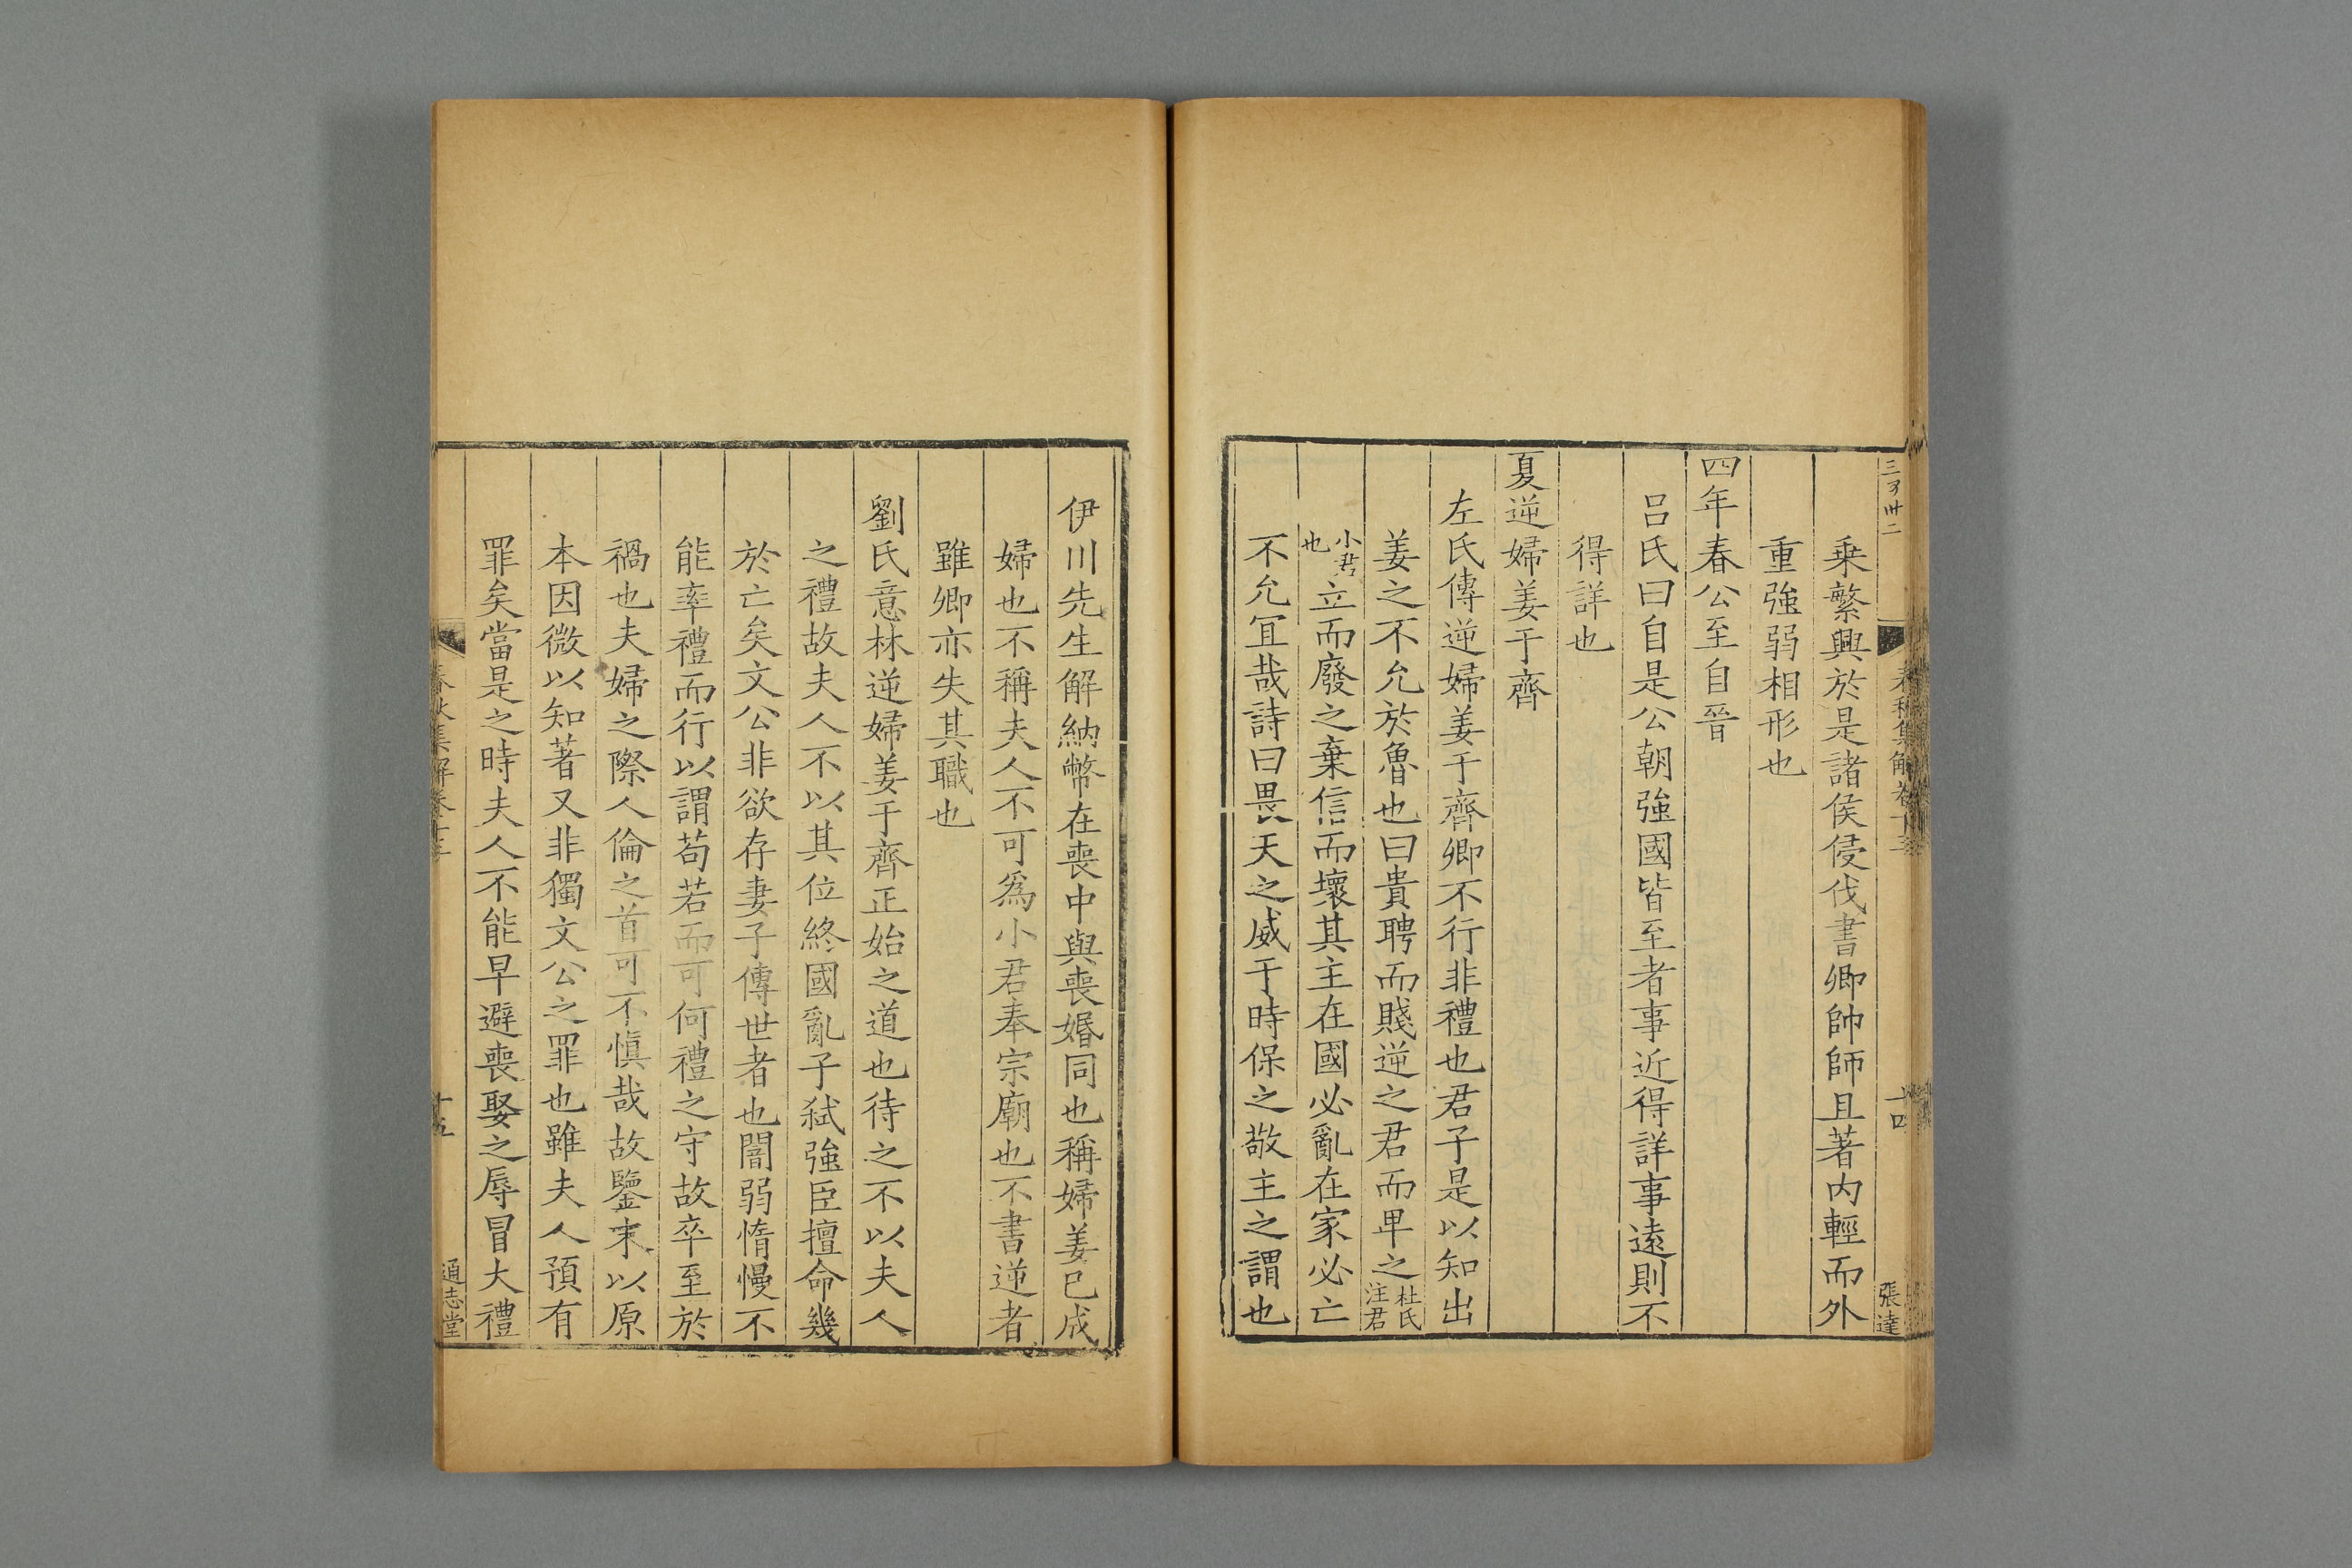 乗繁興於是諸侯侵伐書卿帥師且著內輕而外
重強弱相形也
四年春公至自晉
呂氏曰自是公朝強國皆至者事近得詳事遠則不
得詳也
夏逆婦姜于齊
左氏傳逆婦姜于齊卿不行非禮也君子是以知出
姜之不允於魯也曰貴聘而賤逆之君而卑之杜氏注君
小君也立而廢之棄信而壞其主在國必亂在家必亡
不允宜哉詩曰畏天之威于時保之敬主之謂也
伊川先生解納幣在喪中與喪婚同也稱婦姜已成
婦也不稱夫人不可為小君奉宗廟也不書逆者
雖卿亦失其職也
劉氏意林逆婦姜于齊正始之道也待之不以夫人
之禮故夫人不以其位終國亂子弒強臣擅命幾
於亡矣文公非欲存妻子傳世者也闇弱惰慢不
能率禮而行以謂苟若而可何禮之守故卒至於
禍也夫婦之際人倫之首可不慎哉故鑒末以原
本因微以知著又非獨文公之罪也雖夫人預有
罪矣當是之時夫人不能早避喪娶之辱冒大禮
春秋集解卷十三
十四
張達
十五
通志堂